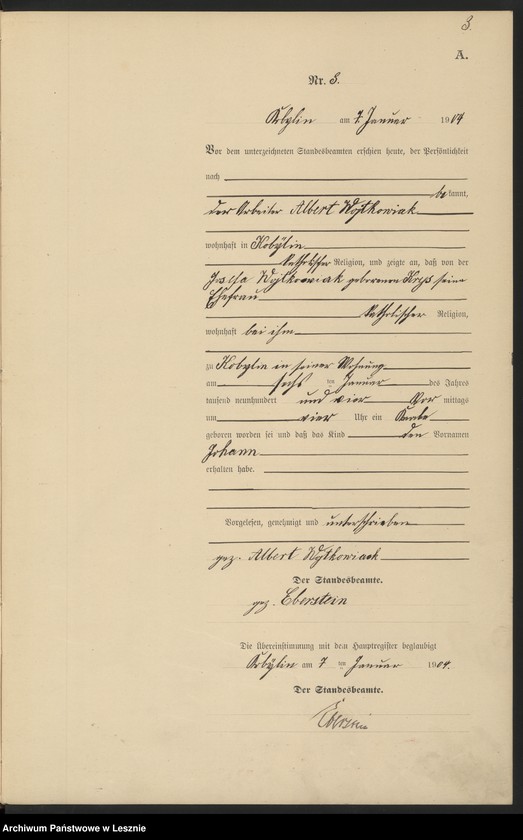 3.
A.
Nr. 3.
Kobylin am 7 Januar 1904
Vor dem unterzeichneten Standesbeamten erschien heute, der Persönlichkeit
nach
bekannt,
der Arbeiter Albert Wojtkowiak
wohnhaft in Kobylin
katholischer Religion, und zeigte an, daß von der
Wojtkowiak geborenen seine
Ehefrau
katholischer Religion,
wohnhaft bei ihm
zu Kobylin in seiner Wohnung
am sechs ten Januar des Jahres
tausend neunhundert und vier Vor mittags
um vier Uhr ein Knabe
geboren worden sei und daß das Kind den Vornamen
Johann
erhalten habe.
Vorgelesen, genehmigt und unterschrieben
gez. Albert Wojtkowiak
Der Standesbeamte.
gez. Eberstein
Die Übereinstimmung mit dem Hauptregister beglaubigt
Kobylin am 7 ten Januar 1904.
Der Standesbeamte.
Eberstein
Archiwum Państwowe w Lesznie